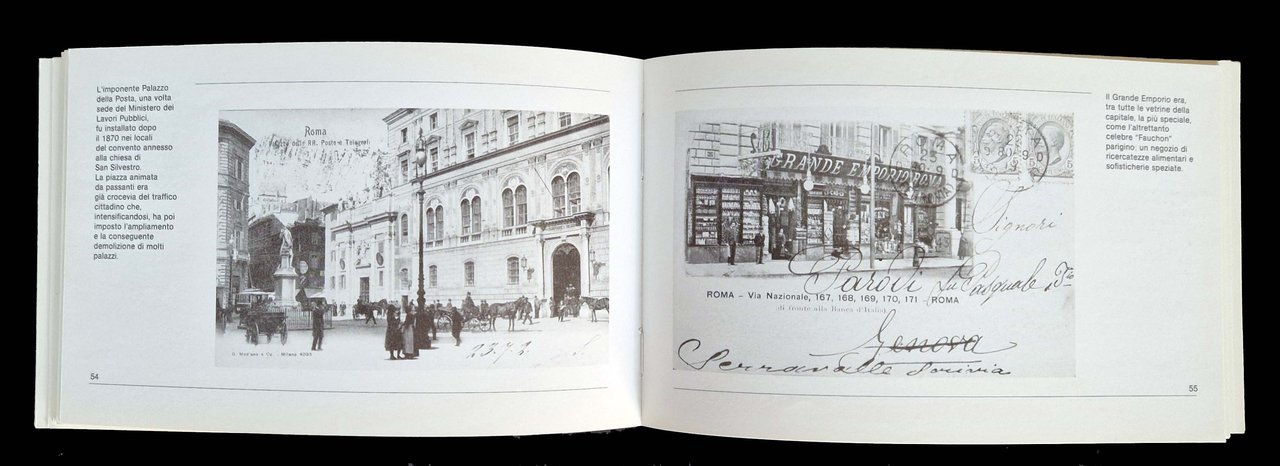 L'imponente Palazzo
della Posta, una volta
sede del Ministero dei
Lavori Pubblici,
fu installato dopo
il 1870 nei locali
del convento annesso
alla chiesa di
San Silvestro.
La piazza animata
da passanti era
già crocevia del traffico
cittadino che,
intensificandosi, ha poi
imposto l'ampliamento
e la conseguente
demolizione di molti
palazzi.
Roma
delle RR. Poste e Telegrafi
& Co. - Milano
54
Il Grande Emporio era,
tra tutte le vetrine della
capitale, la più speciale,
come l'altrettanto
celebre "Fauchon"
parigino: un negozio di
ricercatezze alimentari e
sofisticherie speziate.
GRANDE EMPORIO ROMA
ROMA
Signori
Parodi fu Pasquale
ROMA - Via Nazionale, 167, 168, 169, 170, 171 - ROMA
di fronte alla Banca d'Italia
Genova
Serravalle Scrivia
55